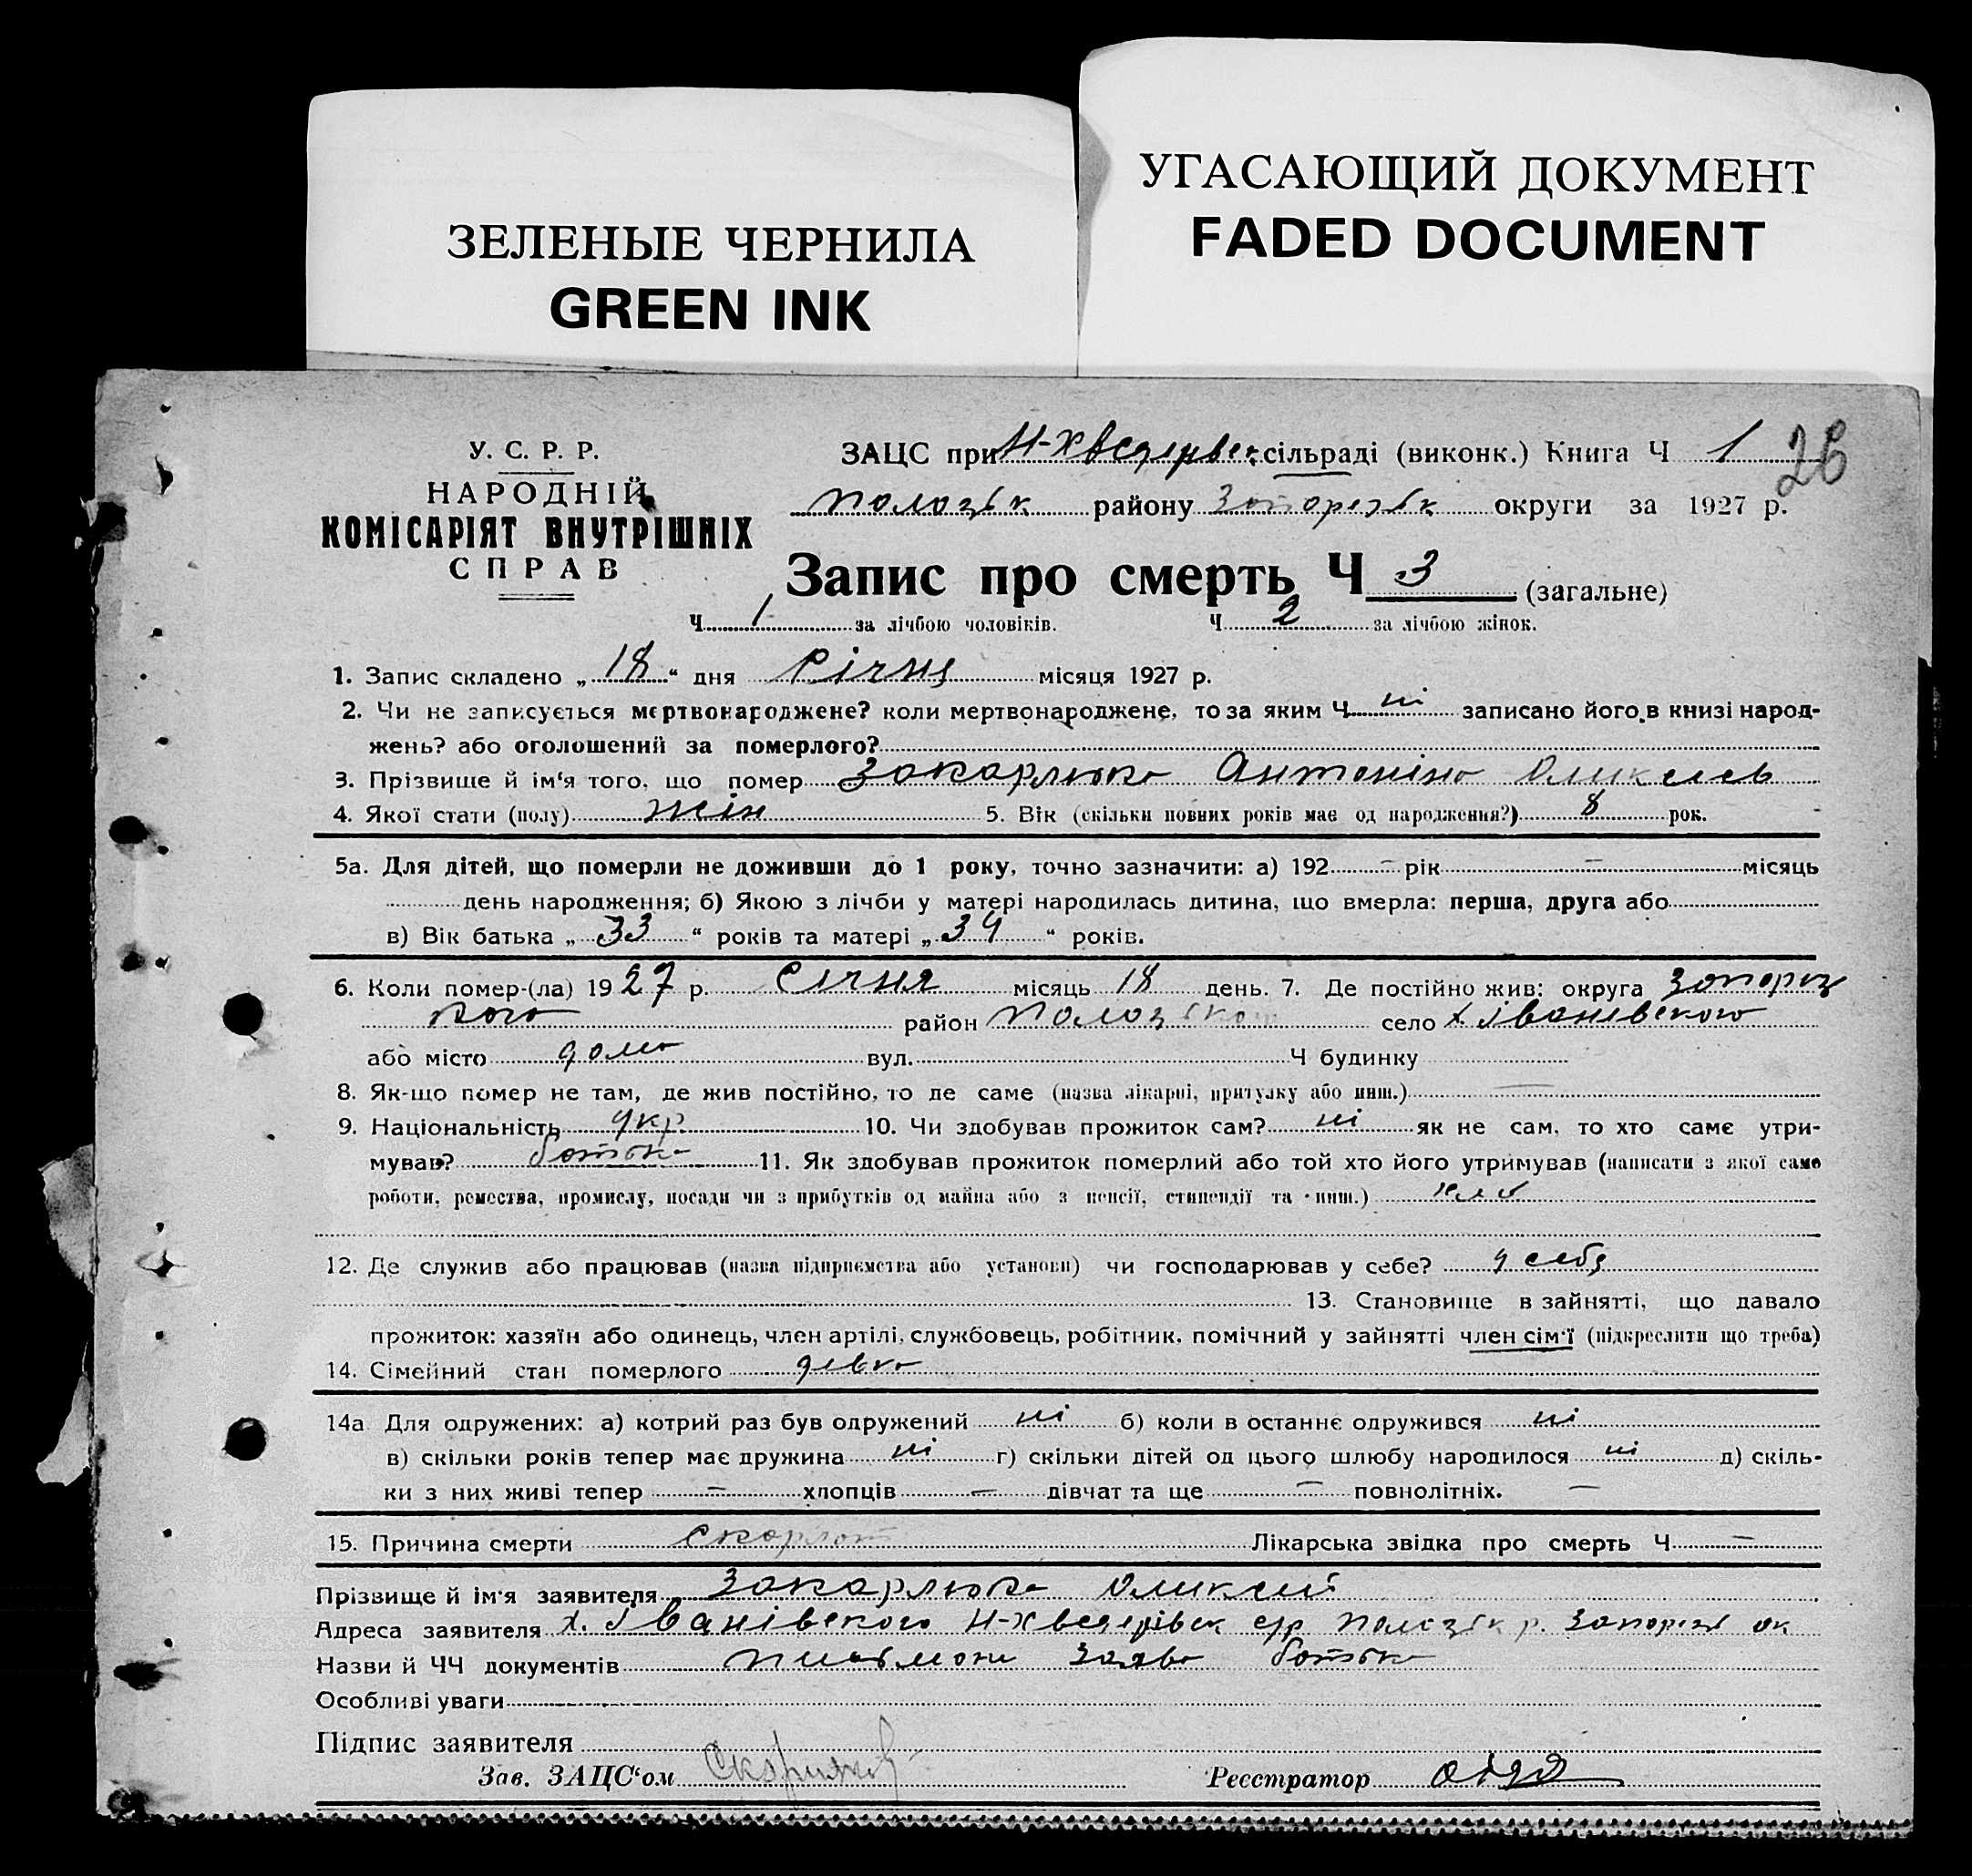 ЗЕЛЕНЫЕ ЧЕРНИЛА
GREEN INK
УГАСАЮЩИЙ ДОКУМЕНТ
FADED DOCUMENT
У. С. Р. Р.
НАРОДНІЙ
КОМІСАРІЯТ ВНУТРІШНІХ
СПРАВ
ЗАЦС при Н-Хведерівск сільраді (виконк.) Книга Ч 1 26
Полозьк району Запорізьк округи за 1927 р.
Запис про смерть Ч 3 (загальне)
Ч 1 за лічбою чоловіків. Ч 2 за лічбою жінок.
1. Запис складено „ 18 “ дня Січня місяця 1927 р.
2. Чи не записується мертвонароджене? коли мертвонароджене, то за яким Ч ні записано його в книзі народ-
жень? або оголошений за померлого?
3. Прізвище й ім‘я того, що помер Закарлюка Антоніна Оликсеев
4. Якої стати (полу) жін 5. Вік (скільки повних років має од народження?) 8 рок.
5а. Для дітей, що померли не доживши до 1 року, точно зазначити: а) 192 – рік – місяць
день народження; б) Якою з лічби у матері народилась дитина, що вмерла: перша, друга або
в) Вік батька „ 33 “ років та матері „ 34 “ років.
6. Коли помер-(ла) 1927 р. Січня місяць 18 день. 7. Де постійно жив: округа Запоріз
кого район Полозьького село х Іванівського
або місто дома вул. Ч будинку
8. Як-що помер не там, де жив постійно, то де саме (назва лікарні, притулку або инш.) —
9. Національність укр. 10. Чи здобував прожиток сам? ні як не сам, то хто саме утри-
мував? батько 11. Як здобував прожиток померлий або той хто його утримував (написати з якої саме
роботи, ремества, промислу, посади чи з прибутків од майна або з пенсії, стипендії та инш.)
12. Де служив або працював (назва підприємства або установи) чи господарював у себе? у себя
13. Становище в зайнятті, що давало
прожиток: хазяїн або одинець, член артілі, службовець, робітник, помічний у зайнятті член сім‘ї (підкреслити що треба)
14. Сімейний стан померлого девка
14а Для одружених: а) котрий раз був одружений ні б) коли в останнє одружився ні
в) скільки років тепер має дружина ні г) скільки дітей од цього шлюбу народилося ні д) скіль-
ки з них живі тепер – хлопців – дівчат та ще – повнолітніх. –
15. Причина смерти скарлат Лікарська звідка про смерть Ч –
Прізвище й ім‘я заявителя Закарлюка Оликсей
Адреса заявителя х. Іванівського Н-Хведерівск с/р Полозьк р. Запорізь ок
Назви й ЧЧ документів заява батька
Особливі уваги
Підпис заявителя
Зав. ЗАЦС‘ом Реєстратор